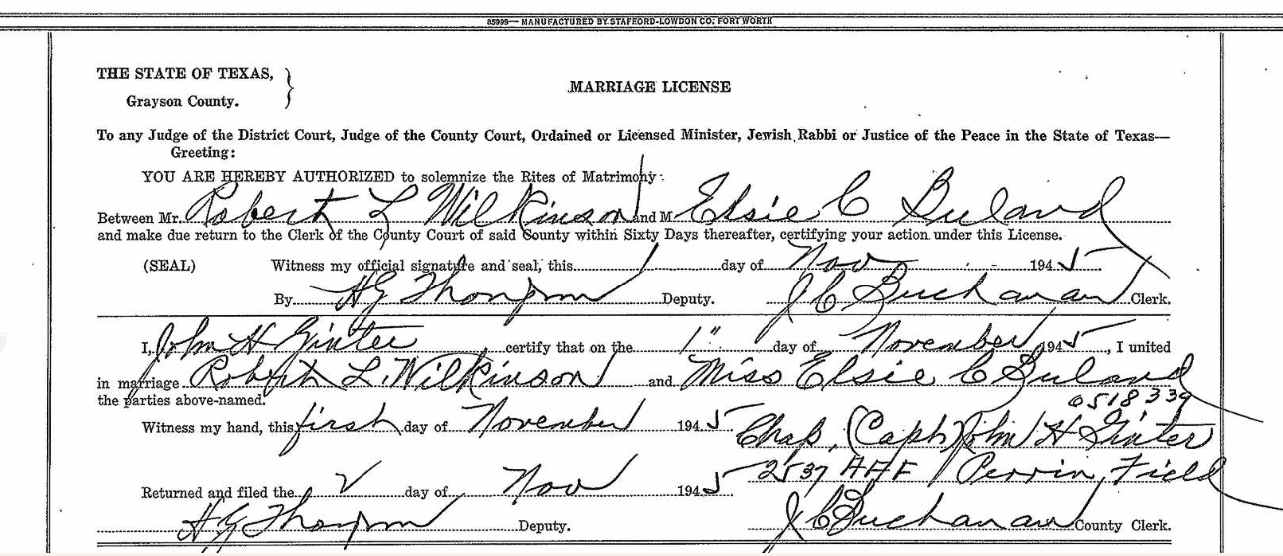 85999— MANUFACTURED BY STAFFORD-LOWDON CO. FORT WORTH
THE STATE OF TEXAS, }
Grayson County.
MARRIAGE LICENSE
To any Judge of the District Court, Judge of the County Court, Ordained or Licensed Minister, Jewish Rabbi or Justice of the Peace in the State of Texas—
Greeting:
YOU ARE HEREBY AUTHORIZED to solemnize the Rites of Matrimony
Between Mr. Robert L Wilkinson and M Elsie C Buland
and make due return to the Clerk of the County Court of said County within Sixty Days thereafter, certifying your action under this License.
(SEAL) Witness my official signature and seal, this 1 day of Nov 1945
By H G Thompson Deputy. J C Buchanan Clerk.
I, John H Ginter certify that on the 1" day of November 1945, I united
in marriage Robert L. Wilkinson and Miss Elsie C Buland
the parties above-named.
0518339
Witness my hand, this first day of November 1945 Chap. (Capt) John H Ginter
2537 AAF Perrin Field
Returned and filed the 2 day of Nov 1945
H G Thompson Deputy. J C Buchanan County Clerk.